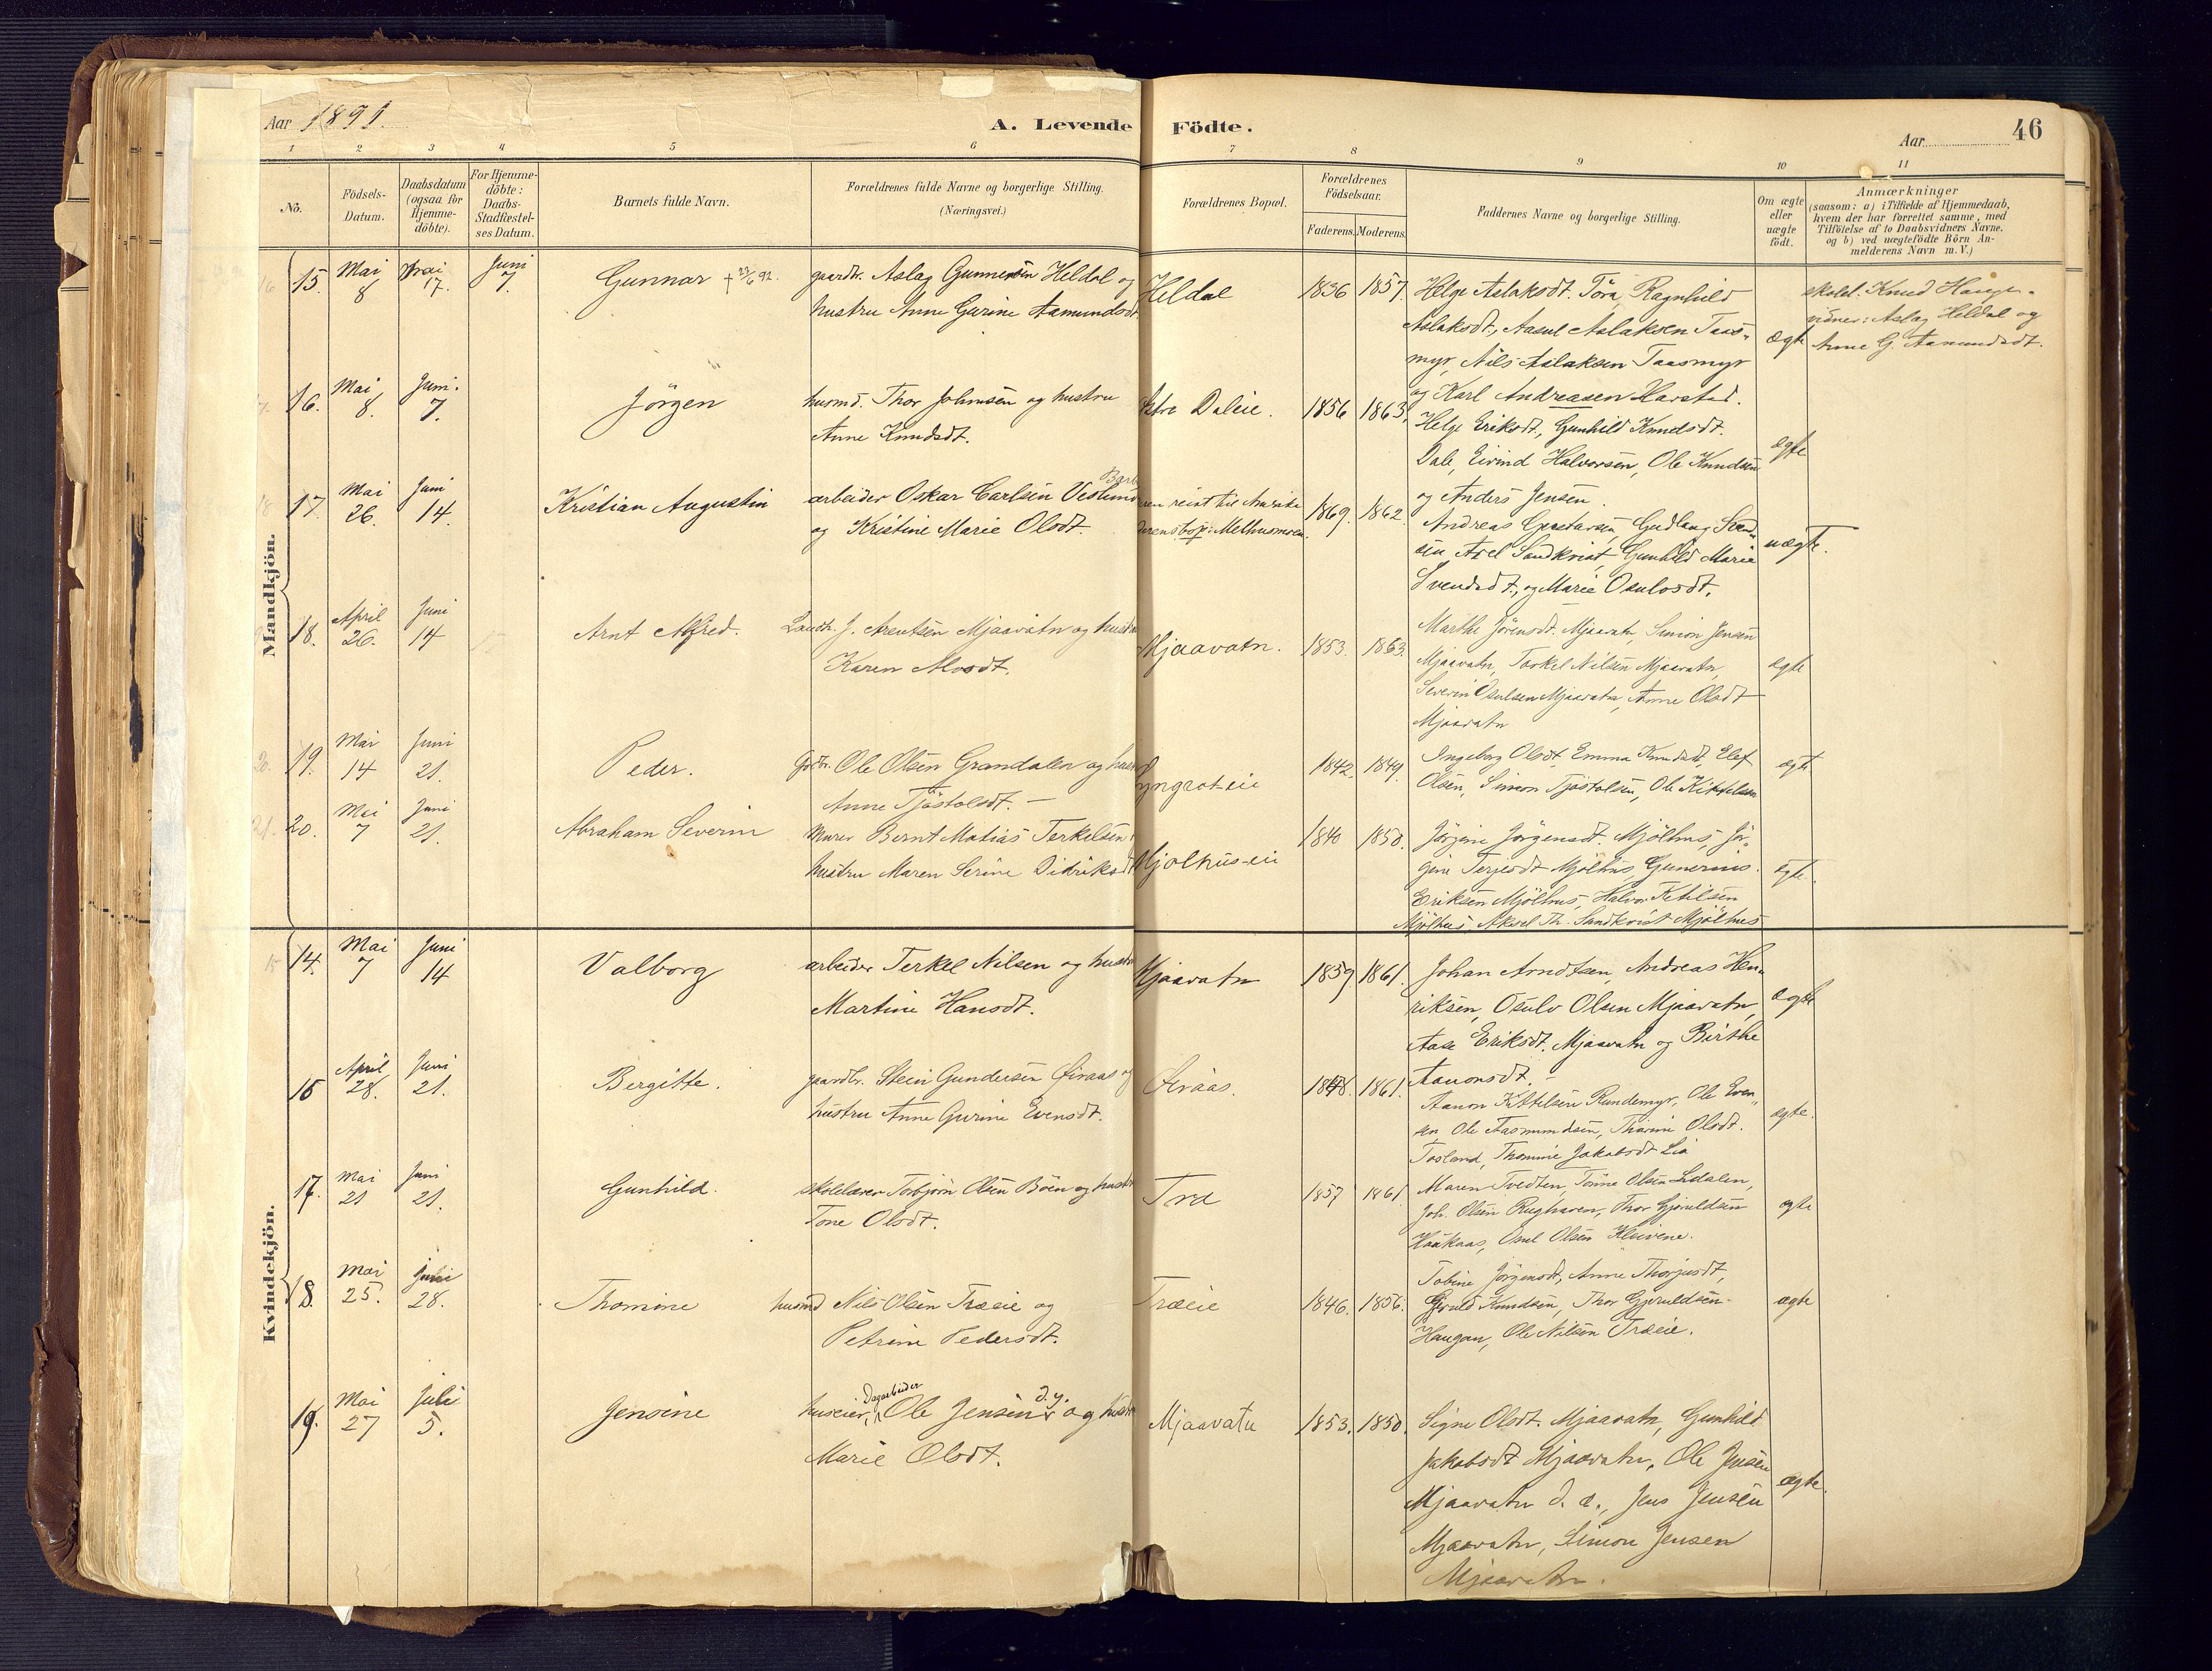 Aar 1891.
A. Levende Födte.
Aar
46
1 2 3 4 5 6 7 8 9 10 11
No.
Födsels-
Datum.
Daabsdatum
(ogsaa for
Hjemme-
döbte).
For Hjemme-
döbte:
Daabs-
Stadfæstel-
ses Datum.
Barnets fulde Navn.
Forældrenes fulde Navne og borgerlige Stilling.
(Næringsvei.)
Forældrenes Bopæl.
Forældrenes
Födselsaar.
Faderens. Moderens.
Faddernes Navne og borgerlige Stilling.
Om ægte
eller
uægte
födt.
Anmærkninger
(saasom: a) i Tilfælde af Hjemmedaab,
hvem der har forrettet samme, med
Tilföielse af to Daabsvidners Navne.
og b) ved uægtefödte Börn An-
melderens Navn m. V.)
Mandkjön.
15. Mai 8 Mai 17. Juni 7.
Gunnar † 23/6 92.
gaardbr. Aslag Gunnersen Heldal og
hustru Anne Gurine Aamundsdt.
Heldal
1836 1857.
Helge Aslaksdt. Töra, Ragnhild
Aslaksdt., Aasul Aslaksen Taas-
myr, Nils Aslaksen Taasmyr
og Karl Andreasen Harstad.
ægte
skolel. Knud Hauge.
vidner: Aslag Heldal og
Anne G. Aamundsdt.
16. Mai 8. Juni 7.
Jörgen
husmd. Thor Johnsen og hustru
Anne Knudsdt.
Daleie.
1856 1863.
Helge Eriksdt., Gunhild Knudsdt.
Dale, Eivind Halvorsen, Ole Knudsen
og Anders Jensen.
ægte
17. Mai 26. Juni 14.
Kristian Augustin
arbeider Oskar Carlsen Vestlund
og Kristine Marie Olsdt.
reist til Amerika
bop: Melhusmoen.
1869. 1862.
Andreas Gustavsen, Gudlaug Svend-
sen, Axel Sandkvist, Gunhild Marie
Svendsdt., og Marie Osulvsdt.
uægte.
18. April 26. Juni 14
Arnt Alfred.
Landh. J. Arentsen Mjaavatn og hustru
Karen Alvsdt.
Mjaavatn.
1853. 1863.
Marthe Jörensdt. Mjaavatn, Simon Jensen
Mjaavatn, Tarkel Nilsen Mjaavatn,
Severin Osulsen Mjaavatn, Anne Olsdt
Mjaavatn
ægte
19. Mai 14 Juni 21.
Peder.
Gdbr. Ole Olsen Grandalen og hustru
Anne Tjöstolsdt. –
1842. 1849.
Ingeborg Olsdt, Emma Knudsdt, Elef
Olsen, Simon Tjöstolsen, Ole Kittelsen
ægte
20. Mai 7 Juni 21.
Abraham Severin
Murer Bernt Matias Terkelsen
hustru Maren Serine Didriksdt
Mjölhus-eie
1840 1850.
Jörgine Jörgensdt. Mjölhus, Jör-
gine Terjesdt Mjölhus, Gunernius
Eriksen Mjölhus, Halvor Ketilsen
Mjölhus Aksel Th. Sandkvist Mjölhus
ægte.
Kvindekjön.
14. Mai 7 Juni 14
Valborg
arbeider Terkel Nilsen og hustru
Martine Hansdt.
Mjaavatn
1859 1861.
Johan Arndtsen, Andreas Hen-
riksen, Osulv Olsen Mjaavatn,
Aase Eriksdt. Mjaavatn og Birthe
Aanonsdt. –
ægte
15 April 28. Juni 21.
Bergitte.
gaardbr. Stein Gundersen Öiraas og
hustru Anne Gurine Evensdt.
Öiraas.
1848. 1861.
Aanon Kittelsen Rundemyr, Ole Even-
sen Ole Aasmundsen, Tharine Olsdt.
Tosland, Thomine Jakobsdt Lia
ægte.
17. Mai 21 Juni 21.
Gunhild.
skolelærer Torbjörn Olsen Böen og hustru
Tone Olsdt.
Træ
1857 1861
Maren Tvedten, Tönne Olsen Lidalen,
Joh. Olsen Rughaven, Thor Gjeruldsen
Haukaas, Osul Olsen Kleivene.
ægte
18. Mai 25. Juni 28.
Thomine
husmd Nils Olsen Træeie og
Petrine Pedersdt.
Træeie
1846. 1856.
Tobine Jörgensdt, Anne Thorjusdt,
Gjeruld Knudsen, Thor Gjeruldsen
Haugan, Ole Nilsen Træeie.
ægte
19. Mai 27 Juli 5.
Jensine
huseier, Dagarbeider Ole Jensen d.y. og hustru
Marie Olsdt.
Mjaavatn
1853. 1850.
Signe Olsdt. Mjaavatn, Gunhild
Jakobsdt Mjaavatn, Ole Jensen
Mjaavatn d. æ., Jens Jensen
Mjaavatn, Simon Jensen
Mjaavatn.
ægte.